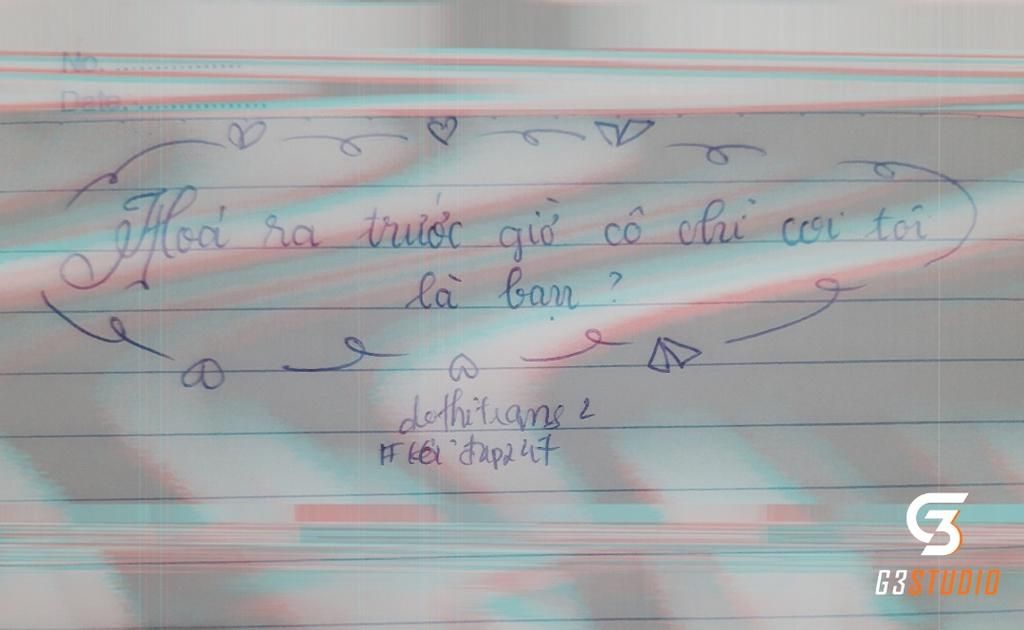 No. ................
Date. ................
Hoá ra trước giờ cô chỉ coi tôi
là bạn ?
dothitrang 2
G3STUDIO